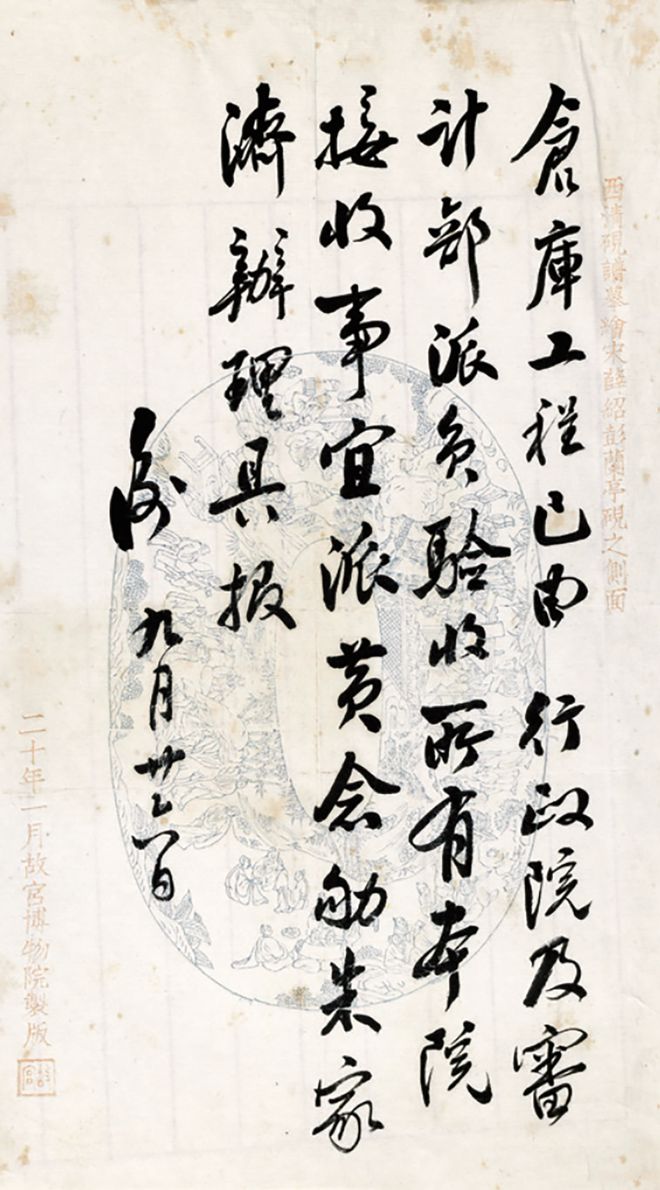 西清硯譜摹繪宋薛紹彭蘭亭硯之側面
倉庫工程已由 行政院及審
計部派員驗收所有本院
接收事宜派黃念劬朱家
濟辦理具报
衡 九月廿六日
二十年一月故宮博物院製版